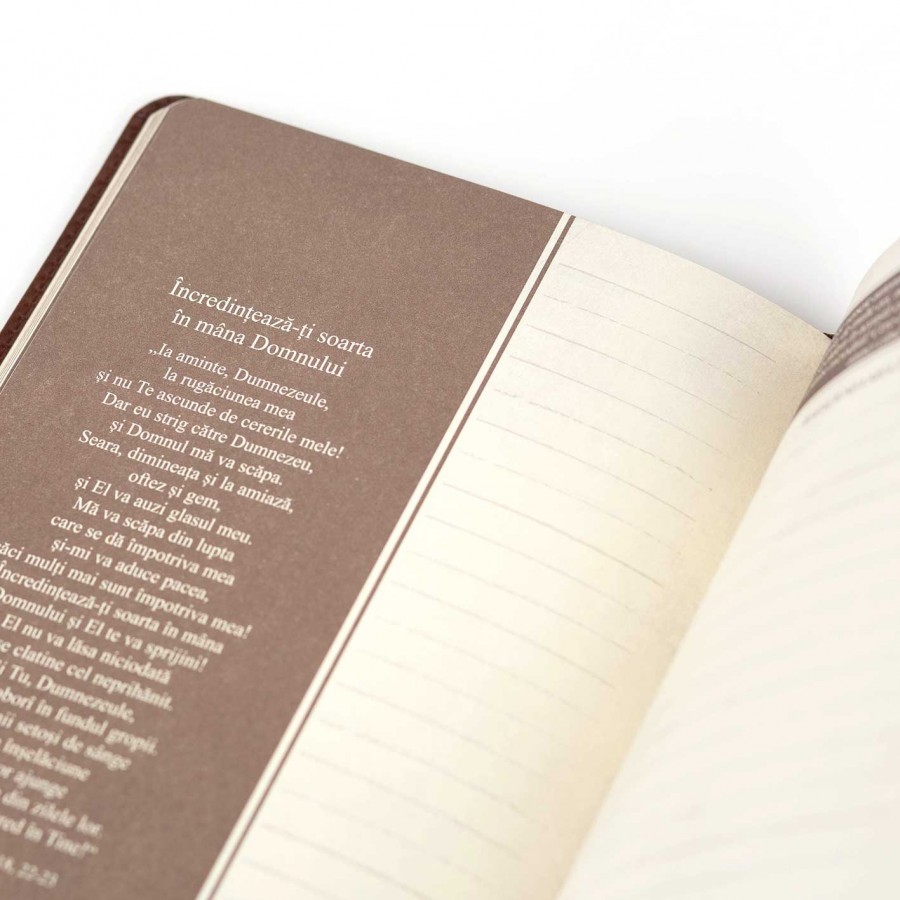 Încredințează-ți soarta
în mâna Domnului
„Ia aminte, Dumnezeule,
la rugăciunea mea
și nu Te ascunde de cererile mele!
Dar eu strig către Dumnezeu,
și Domnul mă va scăpa.
Seara, dimineața și la amiază,
oftez și gem,
și El va auzi glasul meu.
Mă va scăpa din lupta
care se dă împotriva mea
și-mi va aduce pacea,
căci mulți mai sunt împotriva mea!
Încredințează-ți soarta în mâna
Domnului și El te va sprijini!
El nu va lăsa niciodată
clatine cel neprihănit.
Tu, Dumnezeule,
în fundul gropii.
setoși de sânge
înșelăciune
ajunge
din zilele lor.
în Tine!“
22-23